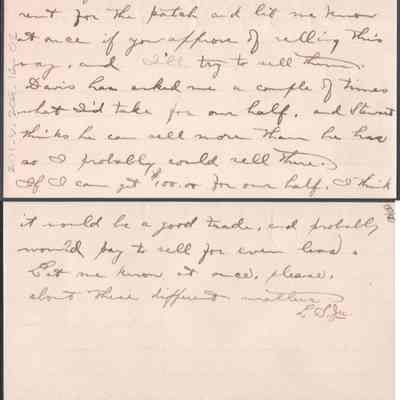 rent for the patch and let me know
at once if you approve of selling this
way, and I'll try to sell them.
Davis has asked me a couple of times
what I'd take for our half, and Stewart
thinks he can sell more than he has
so I probably could sell there.
If I can get $100.00 for our half, I think
it would be a good trade, and probably
would pay to sell for even less.
Let me know at once, please,
about these different matters
L. S. Jr.